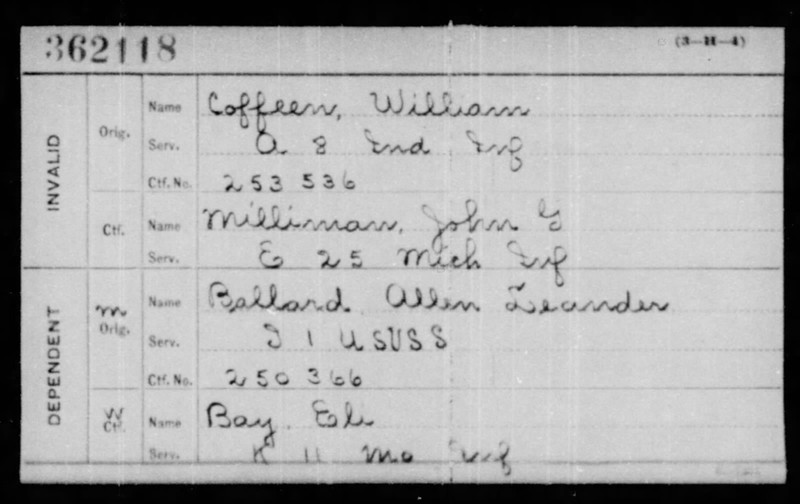 362118
(3—H—4)
INVALID
Orig.
Name Coffeen, William
Serv. A 8 Ind Inf
Ctf. No. 253 536
Ctf.
Name Milliman, John G
Serv. E 25 Mich Inf
DEPENDENT
m
Orig.
Name Ballard Allen Leander
Serv. I 1 USVSS
Ctf. No. 250 366
W
Ctf.
Name Bay Eli
Serv. K 11 Mo Inf